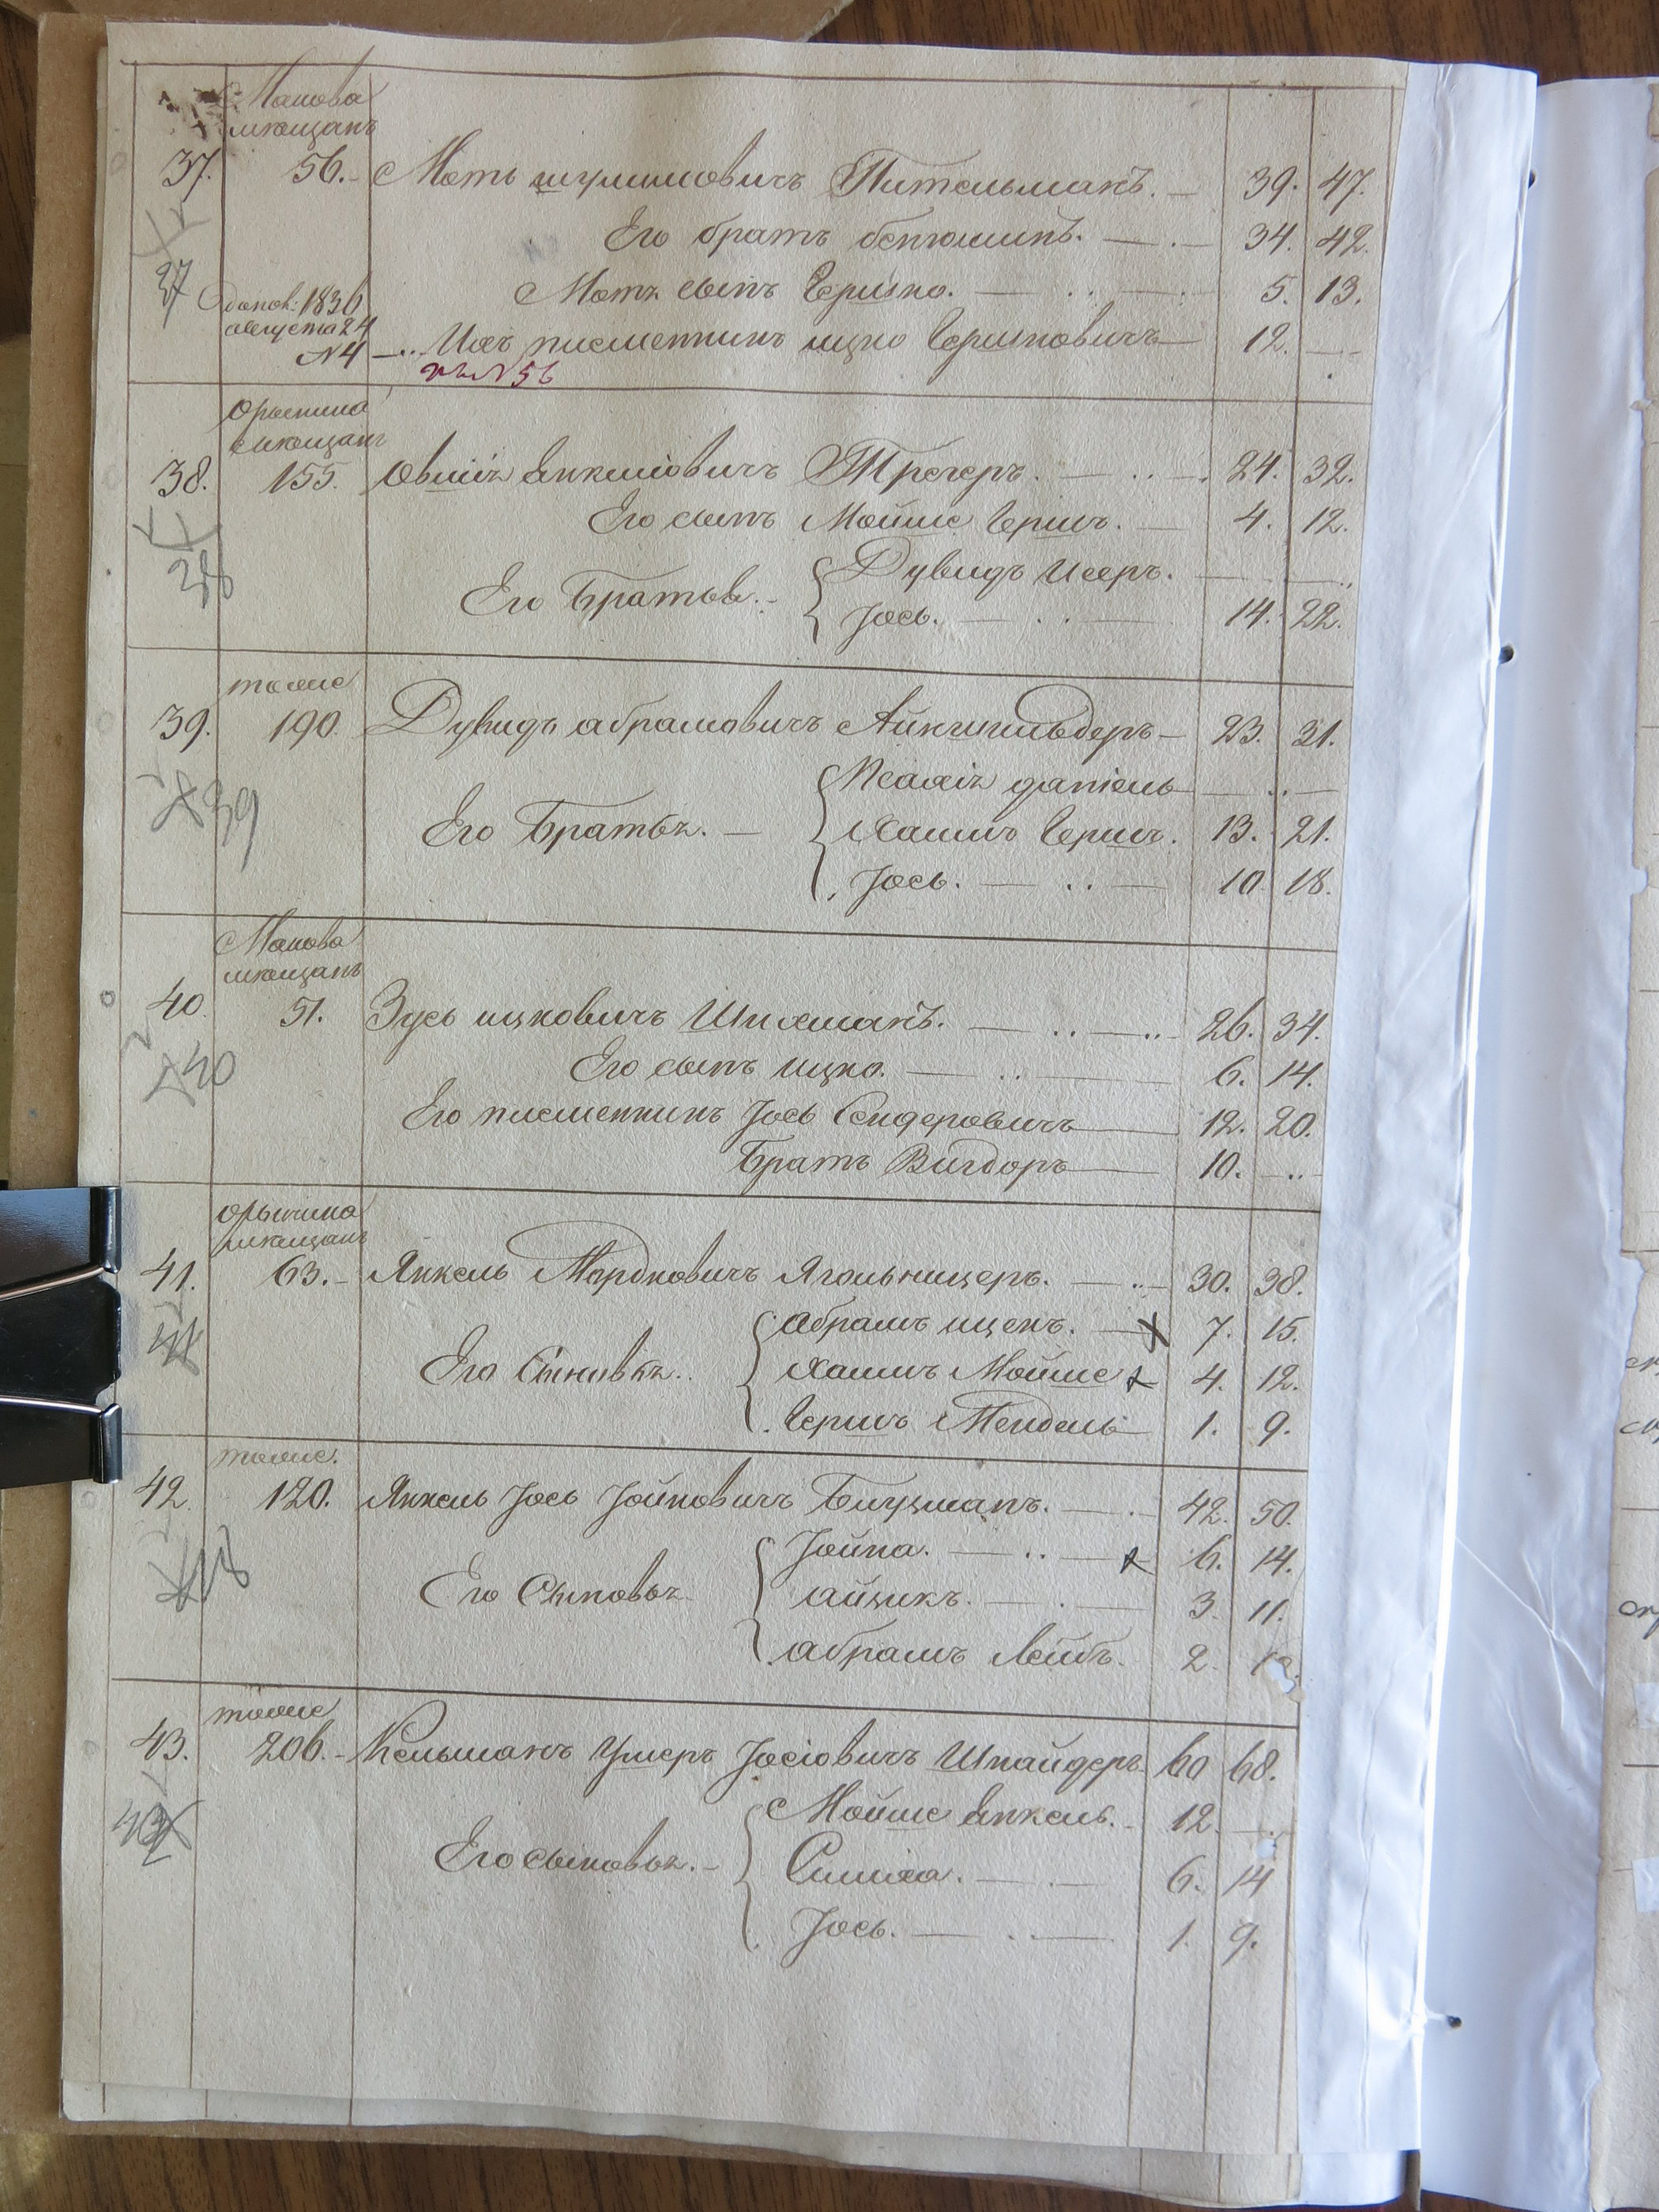 Макова
мещанъ
37. 56. Моть шулимовичъ Тительманъ. 39. 47.
Его братъ бенюминъ. 34. 42.
27
Мотя сынъ Гершко. 5. 13.
допол: 1836
августа 24
N4 Ихъ племенникъ ицко Гершковичъ 12.
N 56
Орынина
мещанъ
38. 155. Овшія Янкеліовичъ Трегеръ. 24. 32.
Его сынъ Мойше Гершъ. 4. 12.
38
Его Братья { Дувидъ Исеръ.
Іось. 14. 22.
тоже
39. 190. Дувидъ абрамовичъ Айкигильдеръ 23. 31.
39
Его Братья. { даніель
Хаимъ Гершъ. 13. 21.
Іось. 10 18.
Макова
мещанъ
40. 51. Зусь ицковичъ Шихманъ. 26. 34.
40
Его сынъ ицко. 6. 14.
Его племенникъ Іось Сендеровичъ 12. 20.
Братъ Вигдоръ 10.
орынина
мещанъ
41. 63. Янкель Мардковичъ Ягольницеръ. 30. 38.
41
Его Сыновья. { абрамъ ицекъ. 7. 15.
Хаимъ Мойше 4. 12.
Гершъ Мендель 1. 9.
тоже.
42. 120. Янкель Іось Іойновичъ Бицманъ. 42. 50.
Его Сыновья { Іойна. 6. 14.
айзикъ. 3. 11.
абрамъ Лейбъ. 2.
тоже
43. 206. Кельманъ Ушеръ Іосіовичъ Шнайдеръ 60 68.
43
Его сыновья. { Мойше Янкель. 12.
Симха. 6. 14
Іось. 1. 9.